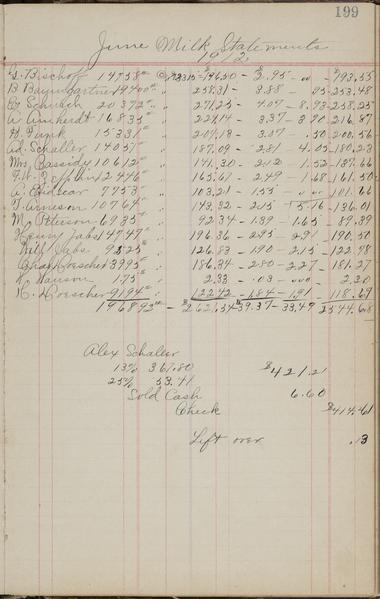 199
June Milk Statements
1912
G. Bischoff 14758 " @ 1.3315 = $196.50 - $2.95 - .00 - $193.55
B Baumgartner 19400 " " 258.31 - 3.88 - .95 - 253.48
Schurch 20372 " " 271.25 - 4.07 - 8.93 - 258.25
A Amherdt 16835 " 224.14 - 3.37 - 3.90 - 216.87
H. Funk 15331 " 204.13 - 3.07 - .50 - 200.56
Ad. Schaller 14051 " 187.09 - 2.81 - 4.05 - 180.23
Mrs. Bassidy 10612 " 141.30 - 2.12 - 1.52 - 137.66
12446 " 165.67 - 2.49 - 1.68 - 161.50
A. 7753 " 103.21 - 1.55 - .00 - 101.66
T. Arneson 10764 " 143.32 - 2.15 - 5.16 - 136.01
M. Peterson 6935 " 92.34 - 1.39 - 1.65 - 89.39
Henry Jahs 14747 " 196.36 - 2.95 - 2.91 - 190.50
Will Jahs 9525 " 126.83 - 1.90 - 2.15 - 122.78
Chas Hoescher 13995 " 186.34 - 2.80 - 2.27 - 181.27
Hanson 175 " 2.33 - .03 - .00 - 2.30
C. Hoescher 9194 " 122.42 - 1.84 - 1.91 - 118.67
196893 - $2621.54 - $39.37 - 33.49 2544.68
Alex Schaller
13% 367.80 $421.21
25% 53.41
Sold Cash 6.60
Check $414.61
Left over .13